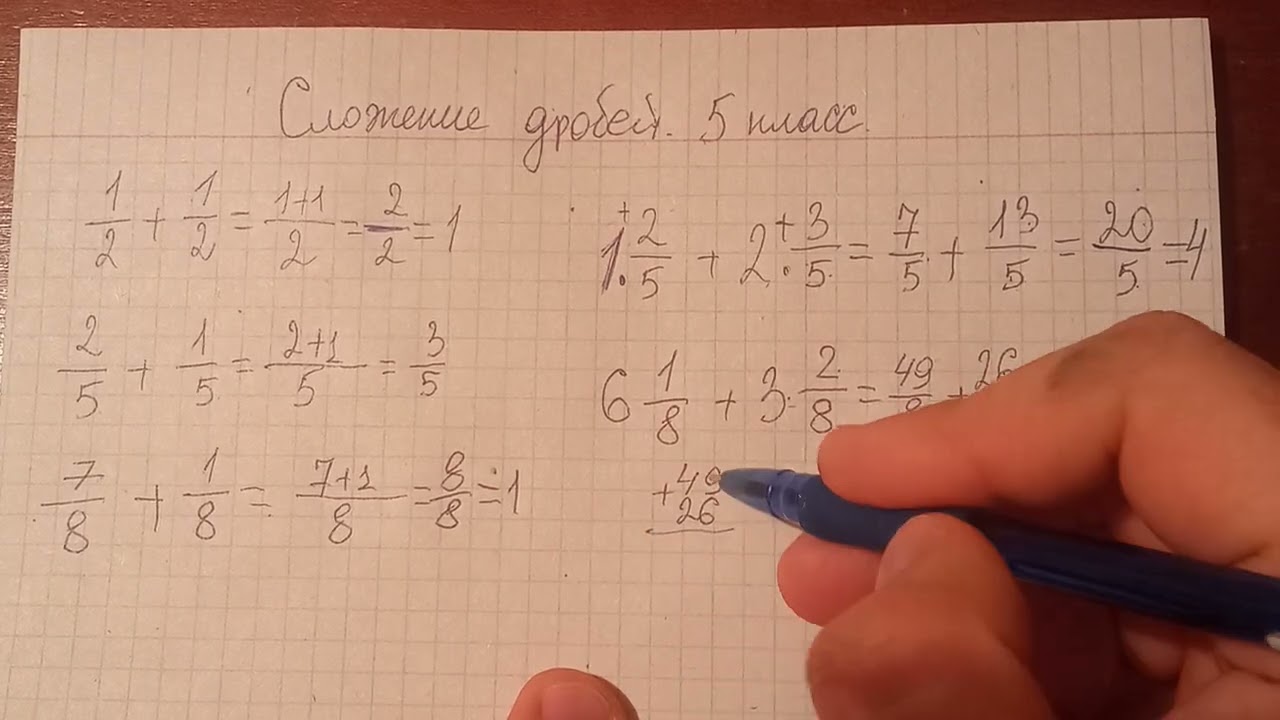 Сложение дробей. 5 класс.
1/2 + 1/2 = 1+1/2 = 2/2 = 1
2/5 + 1/5 = 2+1/5 = 3/5
7/8 + 1/8 = 7+1/8 = 8/8 = 1
1 2/5 + 2 3/5 = 7/5 + 13/5 = 20/5 = 4
6 1/8 + 3 2/8 = 49/8 + 26
+49
26